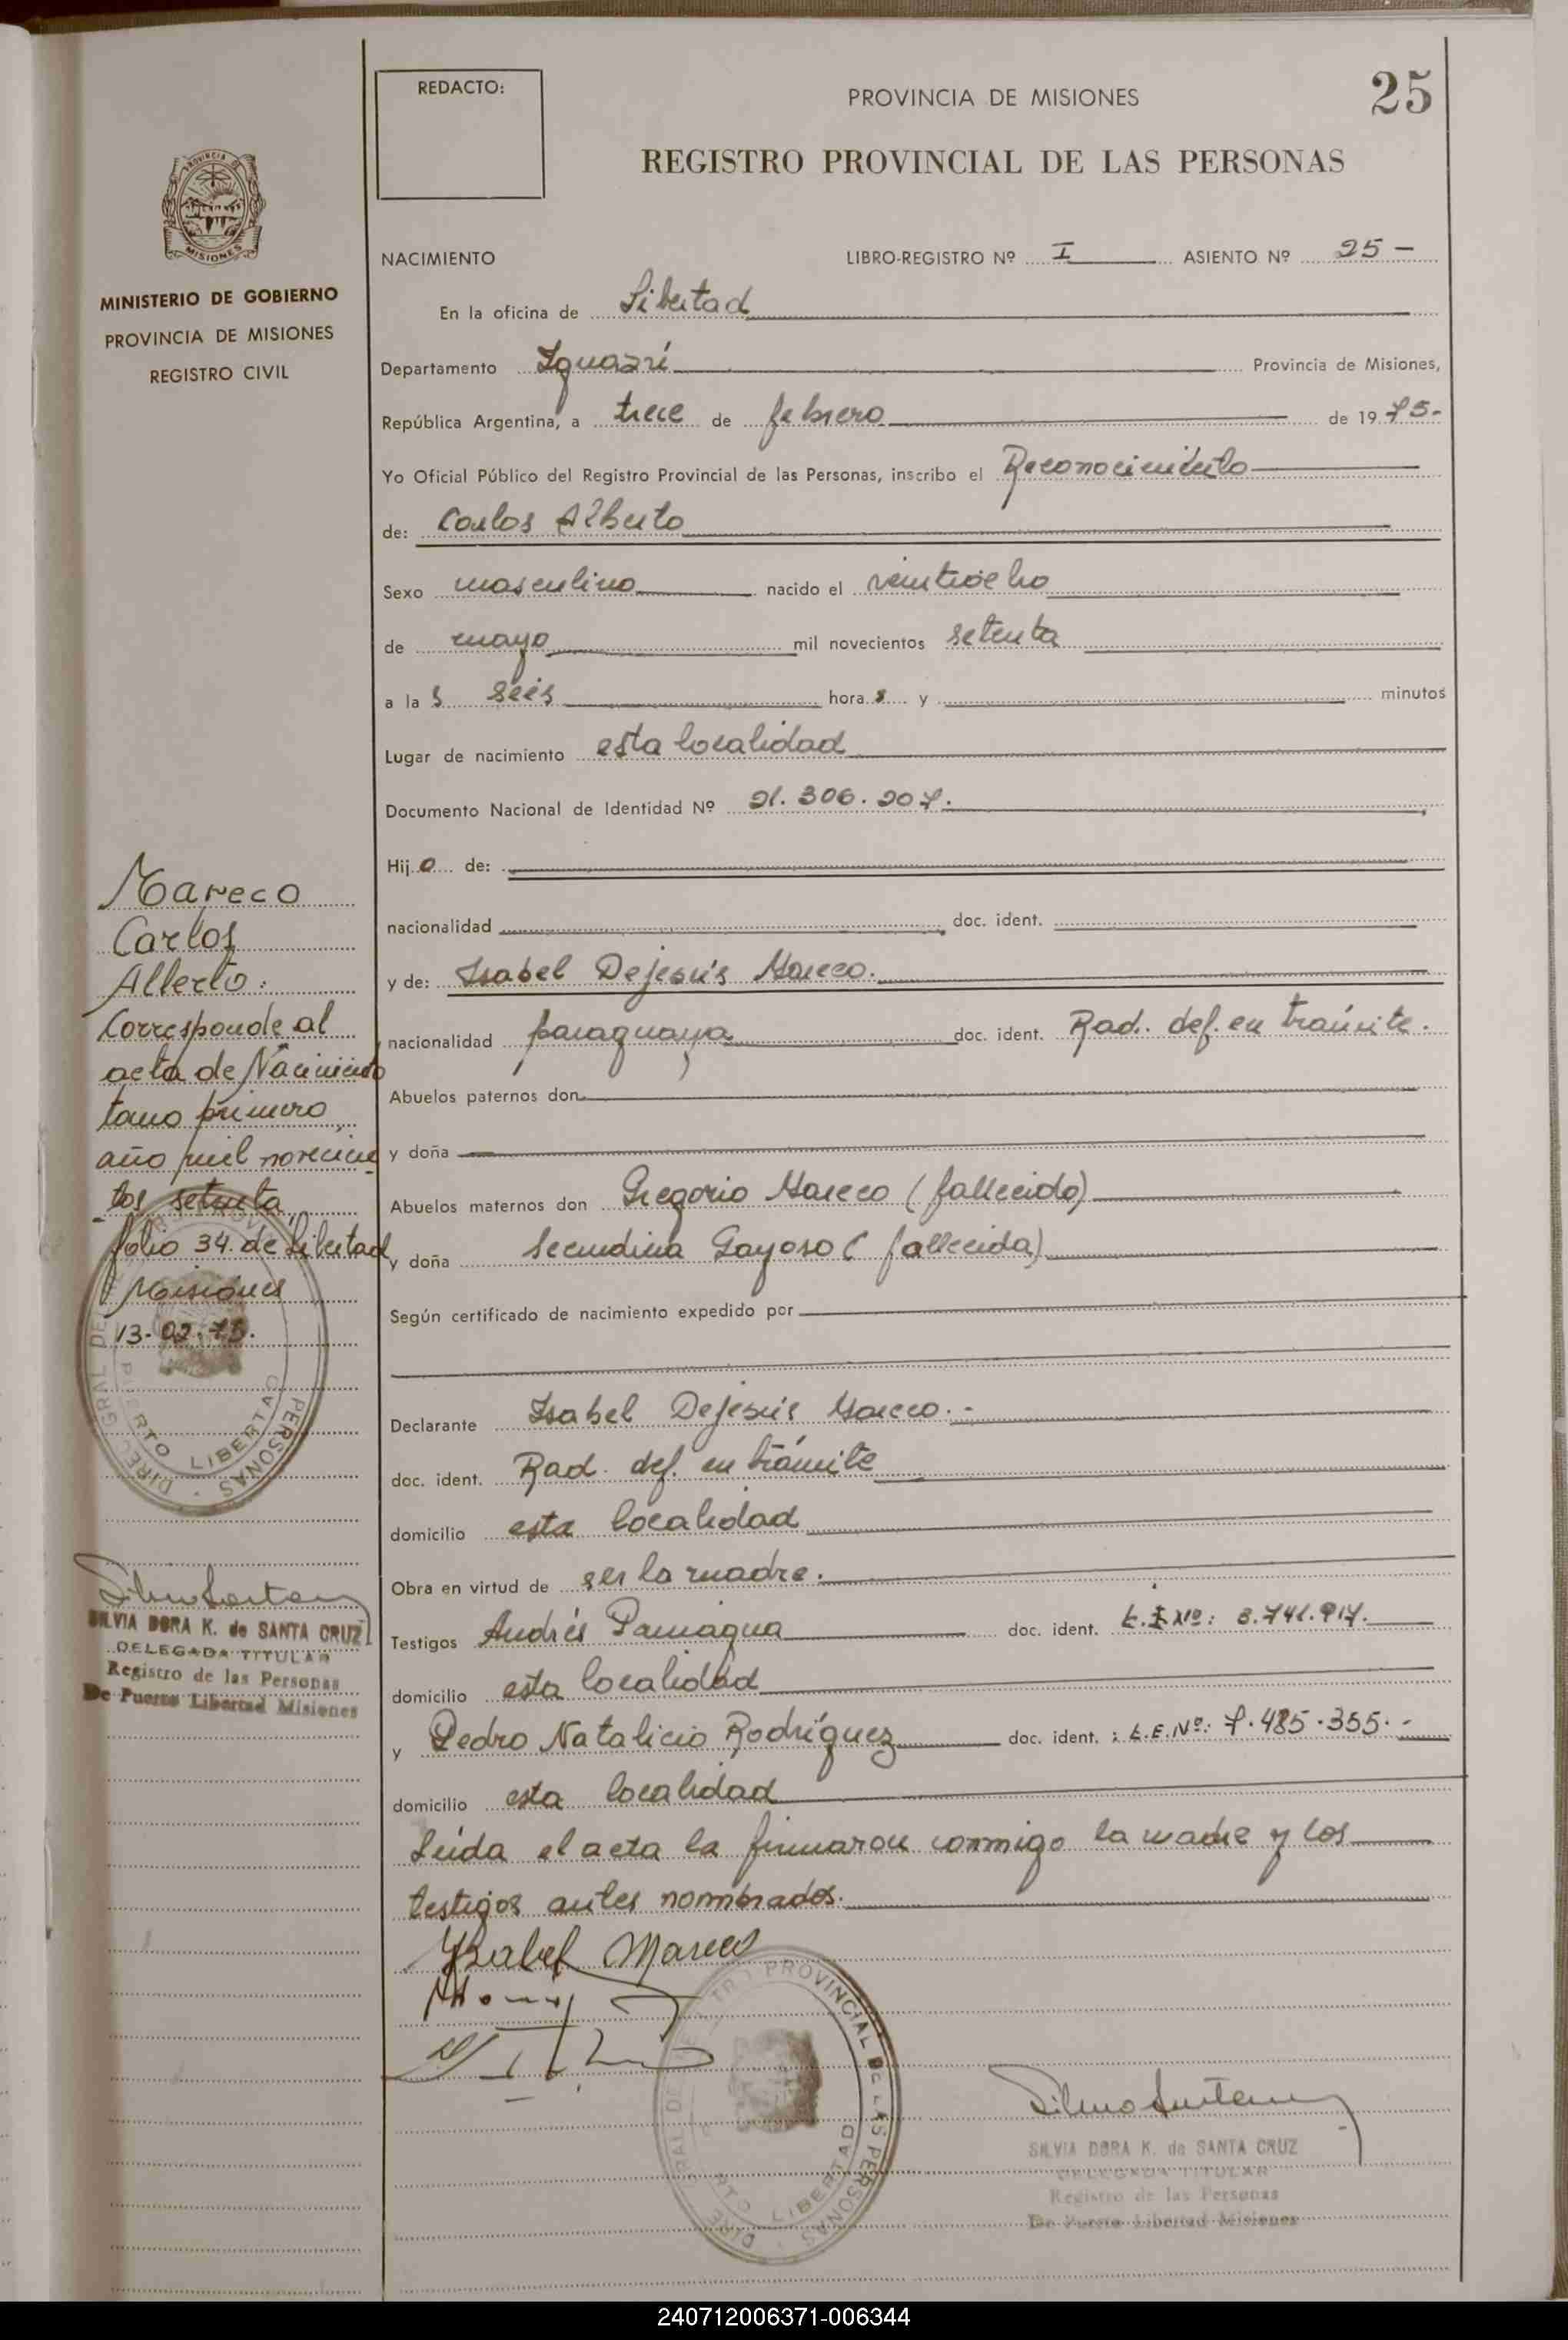 25
REDACTO:
PROVINCIA DE MISIONES
REGISTRO PROVINCIAL DE LAS PERSONAS
PROVINCIA DE
MISIONES
MINISTERIO DE GOBIERNO
PROVINCIA DE MISIONES
REGISTRO CIVIL
NACIMIENTO LIBRO-REGISTRO Nº I ASIENTO Nº 25 -
En la oficina de Libertad
Departamento Iguazú Provincia de Misiones,
República Argentina, a trece de febrero de 1975-
Yo Oficial Público del Registro Provincial de las Personas, inscribo el Reconocimiento
de: Carlos Alberto
Sexo masculino nacido el veintiocho
de mayo mil novecientos setenta
a las seis horas y minutos
Lugar de nacimiento esta localidad
Documento Nacional de Identidad Nº 21.306.207.
Hijo de:
nacionalidad doc. ident.
y de: Isabel Dejesús Mareco.
nacionalidad paraguaya doc. ident. Rad. def. en trámite.
Abuelos paternos don
y doña
Abuelos maternos don Gregorio Mareco (fallecido)
y doña Secundina Gayoso (fallecida)
Según certificado de nacimiento expedido por
Declarante Isabel Dejesús Mareco.-
doc. ident. Rad. def. en trámite
domicilio esta localidad
Obra en virtud de ser la madre.
Testigos Andrés Paniagua doc. ident. L.E Nº: 3.741.917.
domicilio esta localidad
y Pedro Natalicio Rodríguez doc. ident. : L.E.Nº: 7.485.355.-
domicilio esta localidad
Leída el acta la firmaron conmigo la madre y los
testigos antes nombrados.
Ysabel Mareco
Mareco
Carlos
Alberto:
Corresponde al
acta de Nacimiento
tomo primero,
año mil novecien
-tos setenta,
folio 34. de Libertad
Misiones
13-02-75.
DIREC GRAL DE PERSONAS
PUERTO LIBERTAD
SILVIA DORA K. de SANTA CRUZ
DELEGADA TITULAR
Registro de las Personas
De Puerto Libertad Misiones
PROVINCIAL DE LAS PERSONAS
LIBERTAD
SILVIA DORA K. de SANTA CRUZ
DELEGADA TITULAR
Registro de las Personas
De Puerto Libertad Misiones
240712006371-006344